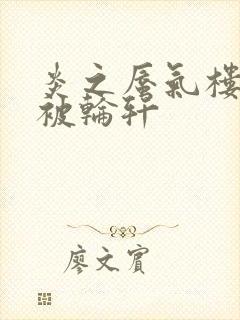 炎之蜃氣樓
被輪軒
廖文賓